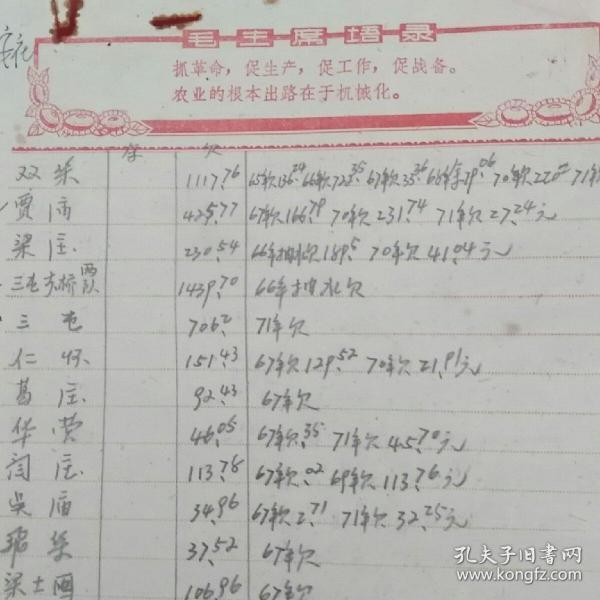 毛主席语录
抓革命，促生产，促工作，促战备。
农业的根本出路在于机械化。
存 欠
双柴 1117.76 65年欠136.24 66年欠72 67年欠33.36 70年欠 71年
贾庙 425.77 67年欠166.79 70年欠231.74 71年欠27.24元
梁庄 230.54 66年抽水欠189.5 70年欠41.04元
三屯 桥两队 1439.70 66年抽水欠
三屯 706.2 71年欠
仁怀 151.43 67年欠129.52 70年欠21.91元
葛庄 92.43 67年欠
华营 46.05 67年欠.35 71年欠45.70元
闫庄 113.78 67年欠.02 69年欠113.76元
吴庙 34.96 67年欠2.71 71年欠32.25元
37.52 67年欠
梁土 106.96 67年欠
孔夫子旧书网
www.kongfz.com